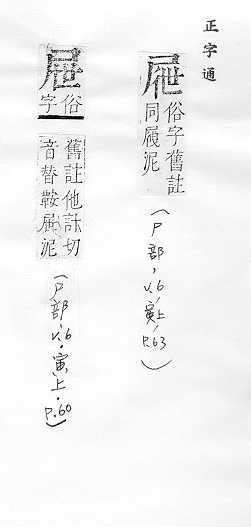 正字通
俗字舊註
同履泥
(尸部，v.6/寅上/P.63)
俗
字
舊註他計切
音替鞍屜泥
(尸部·v.6·寅上·P.60)